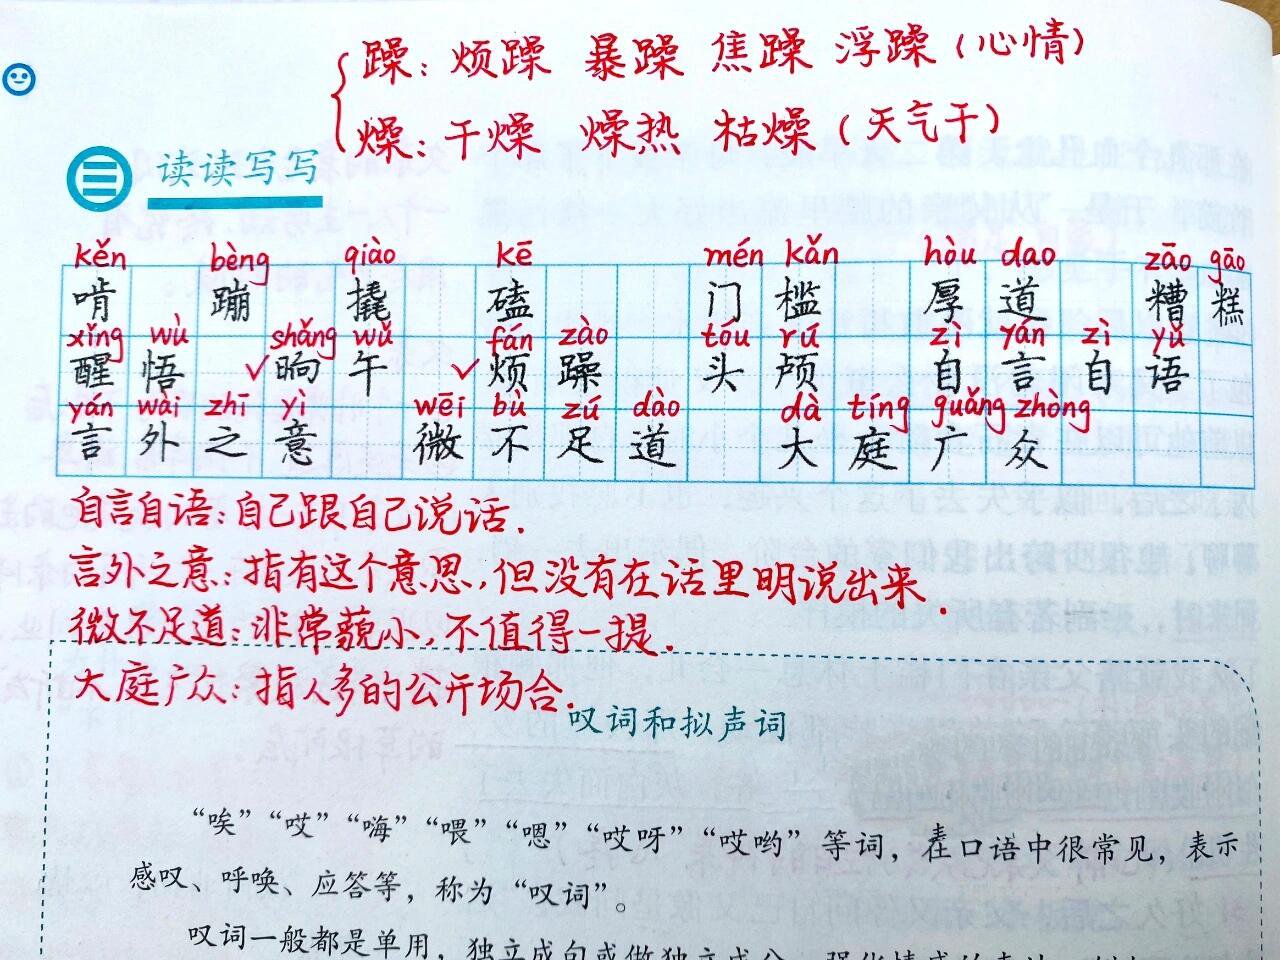 躁：烦躁 暴躁 焦躁 浮躁（心情）
燥：干燥 燥热 枯燥（天气干）
三 读读写写
kěn bèng qiào kē mén kǎn hòu dao zāo gāo
啃 蹦 撬 磕 门槛 厚道 糟糕
xǐng wù shǎng wǔ fán zào tóu rú zì yán zì yǔ
醒悟 ✓晌午 ✓烦躁 头颅 自言自语
yán wài zhī yì wēi bù zú dào dà tíng guǎng zhòng
言外之意 微不足道 大庭广众
自言自语：自己跟自己说话.
言外之意：指有这个意思，但没有在话里明说出来.
微不足道：非常藐小，不值得一提.
大庭广众：指人多的公开场合.
叹词和拟声词
“唉”“哎”“嗨”“喂”“嗯”“哎呀”“哎哟”等词，在口语中很常见，表示
感叹、呼唤、应答等，称为“叹词”。
叹词一般都是单用，独立成句或做独立成分，强化情感的表达